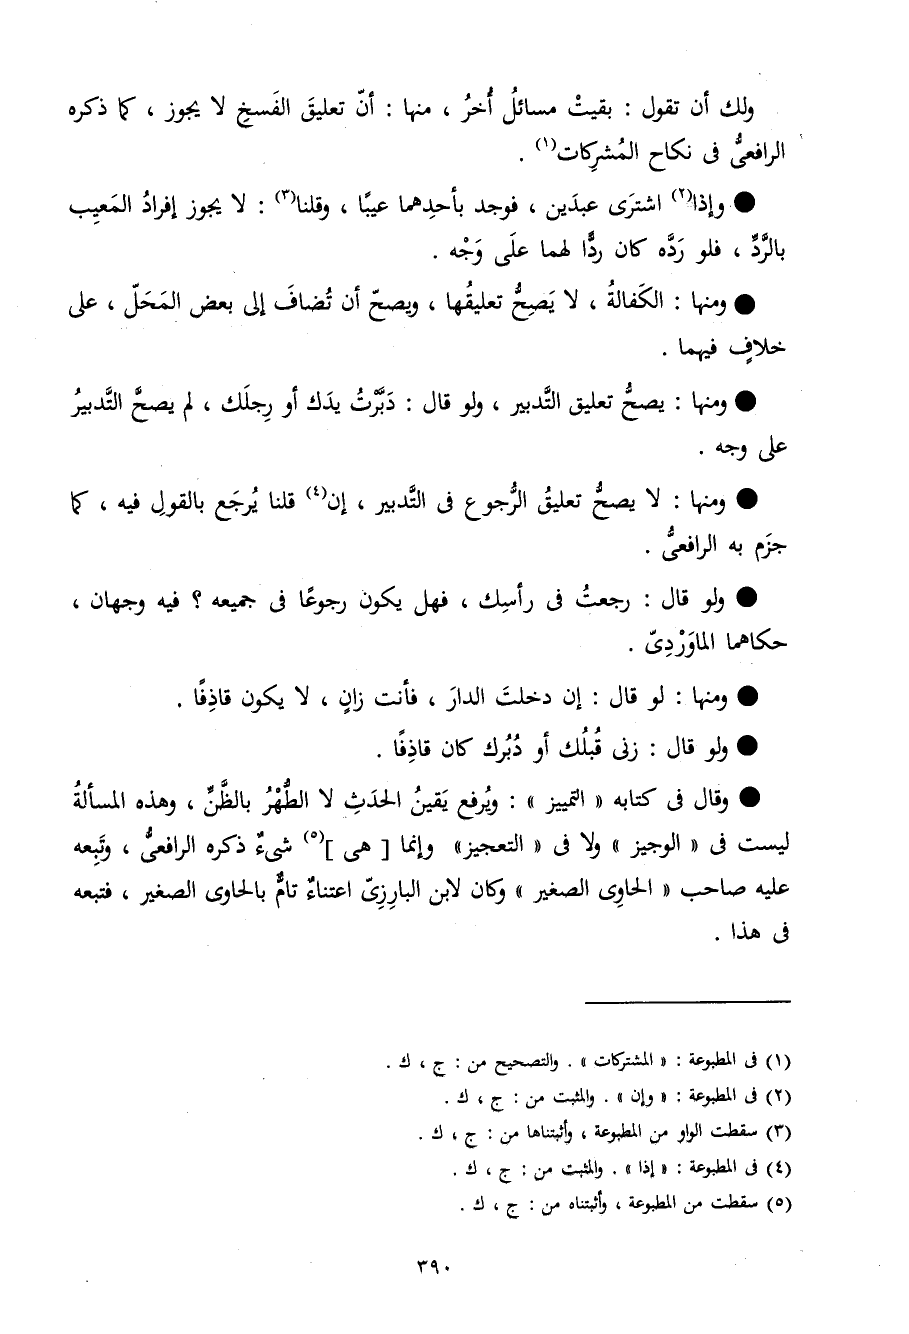 ولك أن تقول : بقيتْ مسائلُ أُخرُ ، منها : أنّ تعليقَ الفَسخِ لا يجوز ، كما ذكره
الرافعىُّ فى نكاح المُشرِكات(١) .
● وإذا(٢) اشترَى عبدَين ، فوجد بأحدِهما عيبًا ، وقلنا(٣) : لا يجوز إفرادُ المَعِيب
بالرَّدِّ ، فلو رَدَّه كان ردًّا لهما علَى وَجْه .
● ومنها : الكَفالةُ ، لا يَصِحُّ تعليقُها ، ويصحّ أن تُضافَ إلى بعض المَحَلّ ، على
خلافٍ فيهما .
● ومنها : يصحُّ تعليق التَّدبير ، ولو قال : دَبَّرْتُ يدَك أو رِجلَك ، لم يصحَّ التَّدبيرُ
على وجه .
● ومنها : لا يصحُّ تعليقُ الرُّجوع فى التَّدبير ، إن(٤) قلنا يُرجَع بالقولِ فيه ، كما
جزَم به الرافعىُّ .
● ولو قال : رجعتُ فى رأسِك ، فهل يكون رجوعًا فى جميعه ؟ فيه وجهان ،
حكاهما الماوَرْدِىّ .
● ومنها : لو قال : إن دخلتَ الدارَ ، فأنت زانٍ ، لا يكون قاذِفًا .
● ولو قال : زنى قُبلُك أو دُبُرك كان قاذِفًا .
● وقال فى كتابه « التمييز » : ويُرفع يَقينُ الحدَثِ لا الطُّهْرُ بالظَّنِّ ، وهذه المسألةُ
ليست فى « الوجيز » ولا فى « التعجيز» وإنما [ هى ](٥) شىءٌ ذكره الرافعىُّ ، وتَبِعه
عليه صاحب « الحاوِى الصغير » وكان لابن البارِزِىّ اعتناءٌ تامٌّ بالحاوى الصغير ، فتبعه
فى هذا .
(١) فى المطبوعة : « المشتركات » . والتصحيح من : ج ، ك .
(٢) فى المطبوعة : « وإن » . والمثبت من : ج ، ك .
(٣) سقطت الواو من المطبوعة ، وأثبتناها من : ج ، ك .
(٤) فى المطبوعة : « إذا » . والمثبت من : ج ، ك .
(٥) سقطت من المطبوعة ، وأثبتناه من : ج ، ك .
٣٩٠